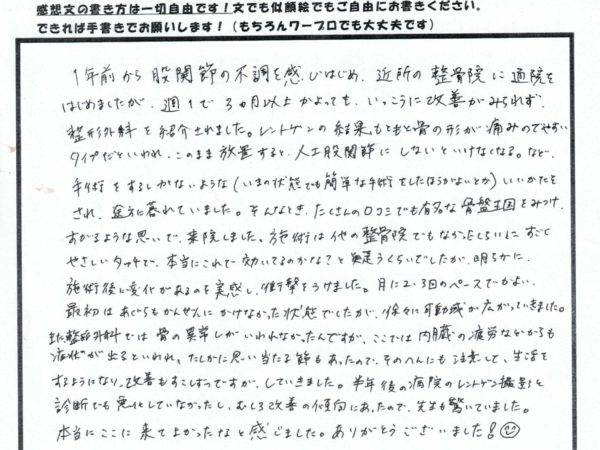 感想文の書き方は一切自由です！文でも似顔絵でもご自由にお書きください。
できれば手書きでお願いします！（もちろんワープロでも大丈夫です）
1年前から股関節の不調を感じはじめ、近所の整骨院に通院を
はじめましたが、週1で3カ月以上かよっても、いっこうに改善がみられず、
整形外科を紹介されました。レントゲンの結果、もともと骨の形が痛みのでやすい
タイプだといわれ、このまま放置すると、人工股関節にしないといけなくなる。など、
手術をするしかないような（いまの状態でも簡単な手術をしたほうがよいとか）いいかたを
され、途方に暮れていました。そんなとき、たくさんの口コミでも有名な骨盤王国をみつけ、
すがるような思いで、来院しました。施術は他の整骨院でもなかったくらいにすごく
やさしいタッチで、本当にこれで効いてるのかな？と疑うくらいでしたが、明らかに
施術後に変化があるのを実感し、衝撃をうけました。月に2・3回のペースでかよい、
最初はあぐらもかんぜんにかけなかった状態でしたが、徐々に可動域が広がっていきました。
また整形外科では骨の異常しかいわれなかったんですが、ここでは内臓の疲労などからも
症状が出るといわれ、たしかに思い当たる節もあったので、そのへんにも注意して、生活を
するようになり、改善もすこしずつですが、していきました。半年後の病院のレントゲン撮影と
診断でも悪化していなかったし、むしろ改善の傾向にあったので、先生も驚いていました。
本当にここに来てよかったなと感じました。ありがとうございました！